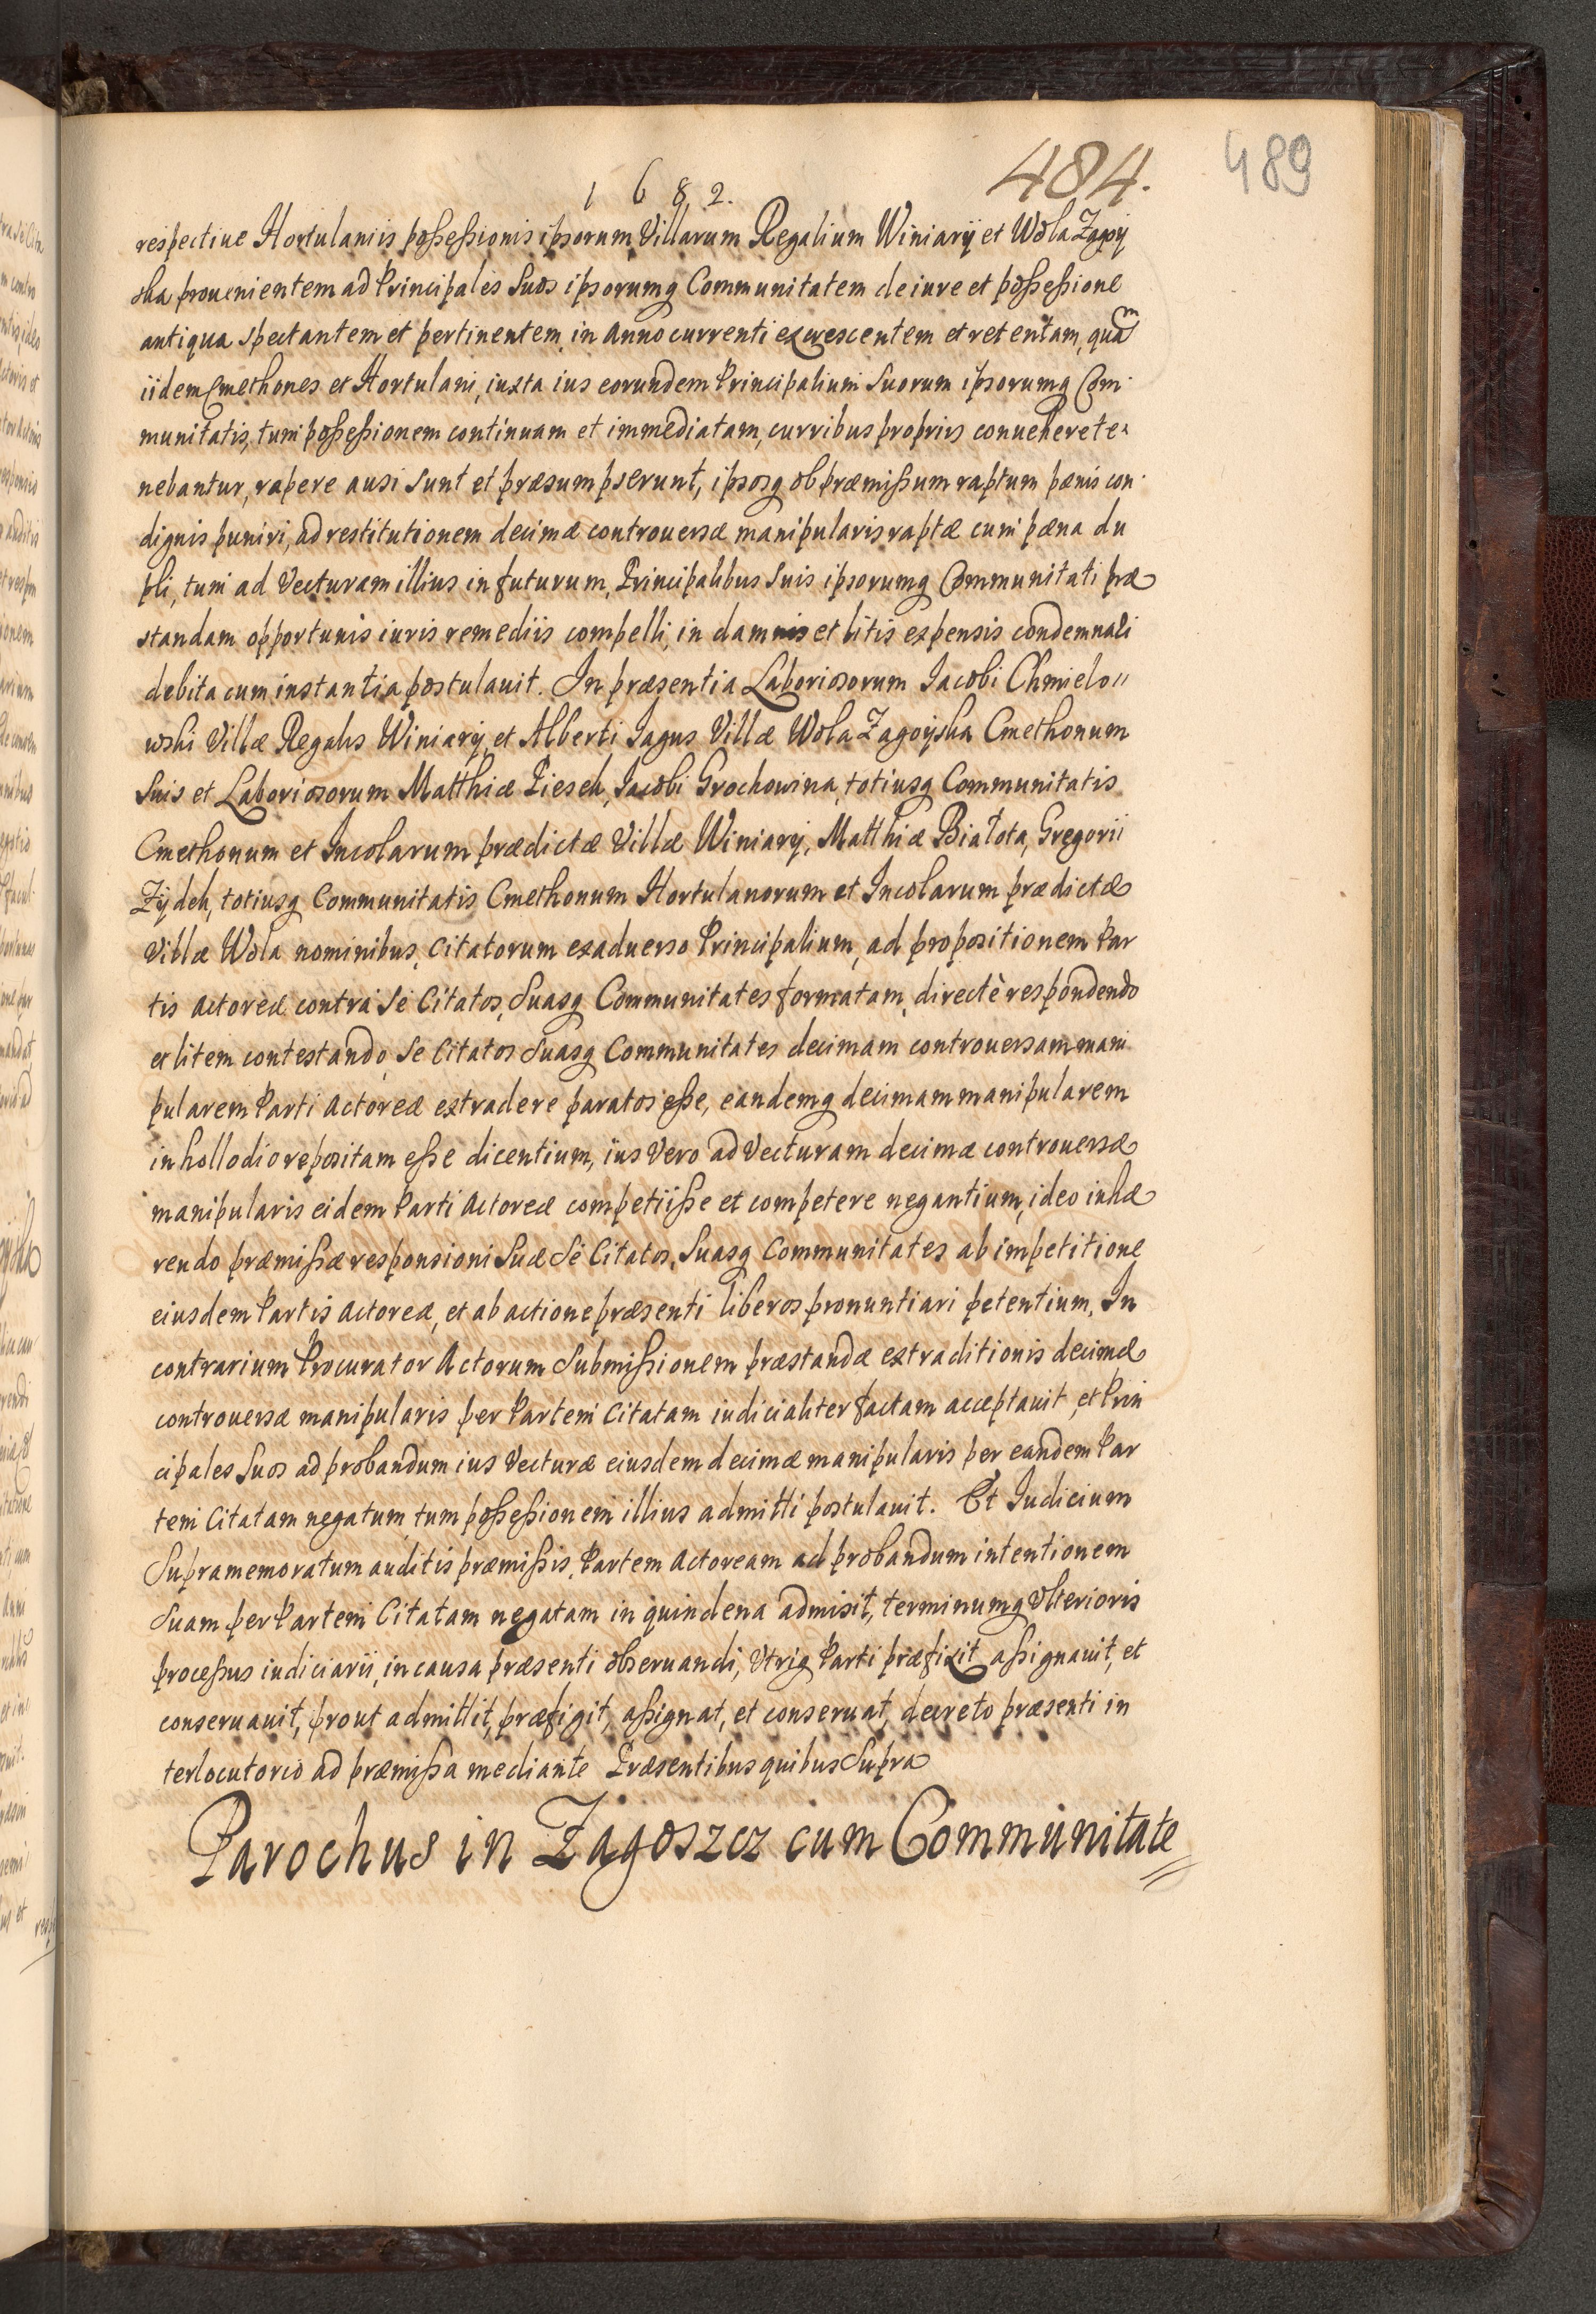 484.
489
1682.
respectiue Hortulaniis poßeßionis ipsorum Villarum Regalium Winiarÿ et Wola Zagoÿ
ska prouenientem ad Principales Suos ipsorumq Communitatem de iure et poßeßione
antiqua spectantem et pertinentem, in Anno currenti excrescentem et retentam, quam
iidem Cmethones et Hortulani, iuxta ius eorundem Principalium Suorum ipsorumq Com
munitatis, tum poßeßionem continuam et immediatam, curribus propriis conuehere te
nebantur, rapere ausi Sunt et præsumpserunt, ipsosq ob præmißum raptum pænis con
dignis puniri, ad restitutionem decimæ controuersæ manipularis raptæ cum pæna du
pli, tum ad Vecturam illius in futurum, Principalibus Suis ipsorumq Communitati præ
standam opportunis iuris remediis compelli, in damnis et litis expensis condemnari
debita cum instantia postulauit. In præsentia Laboriosorum Iacobi Chmielo
wski Villæ Regalis Winiarÿ, et Alberti Iagus Villæ Wola Zagoÿska Cmethonum
Suis et Laboriosorum Matthiæ Piesek, Iacobi Grochowina, totiusq Communitatis
Cmethonum et Incolarum prædictæ Villæ Winiarÿ, Matthiæ Białota, Gregorii
Zÿdek, totiusq Communitatis Cmethonum Hortulanorum et Incolarum prædictæ
Villæ Wola nominibus, Citatorum ex aduerso Principalium, ad propositionem Par
tis Actoreæ contra Se Citatos, Suasq Communitates formatam, directè respondendo
et litem contestando, Se Citatos Suasq Communitates decimam controuersam mani
pularem Parti Actoreæ extradere paratos eße, eandemq decimam manipularem
in hollodio repositam eße dicentium, ius Vero ad Vecturam decimæ controuersæ
manipularis eidem Parti Actoreæ competiiße et competere negantium, ideo inhæ
rendo præmißæ responsioni Suæ Se Citatos, Suasq Communitates ab impetitione
eiusdem Partis Actoreæ, et ab actione præsenti liberos pronuntiari petentium, In
contrarium Procurator Actorum Submißionem præstandæ extraditionis decimæ
controuersæ manipularis per Partem Citatam iudicialiter factam acceptauit, et Prin
cipales Suos ad probandum ius Vecturæ eiusdem decimæ manipularis per eandem Par
tem Citatam negatum, tum poßeßionem illius admitti postulauit. Et Iudicium
Supramemoratum auditis præmißis, Partem Actoream ad probandum intentionem
Suam per Partem Citatam negatam in quindena admisit, terminumq Vlterioris
proceßus iudiciarii, in causa præsenti obseruandi, Vtriq Parti præfixit aßignauit, et
conseruauit, prout admittit, præfigit, aßignat, et conseruat, decreto præsenti in
terlocutorio ad præmißa mediante Præsentibus quibus Supra
Parochus in Zagoszcz cum Communitate